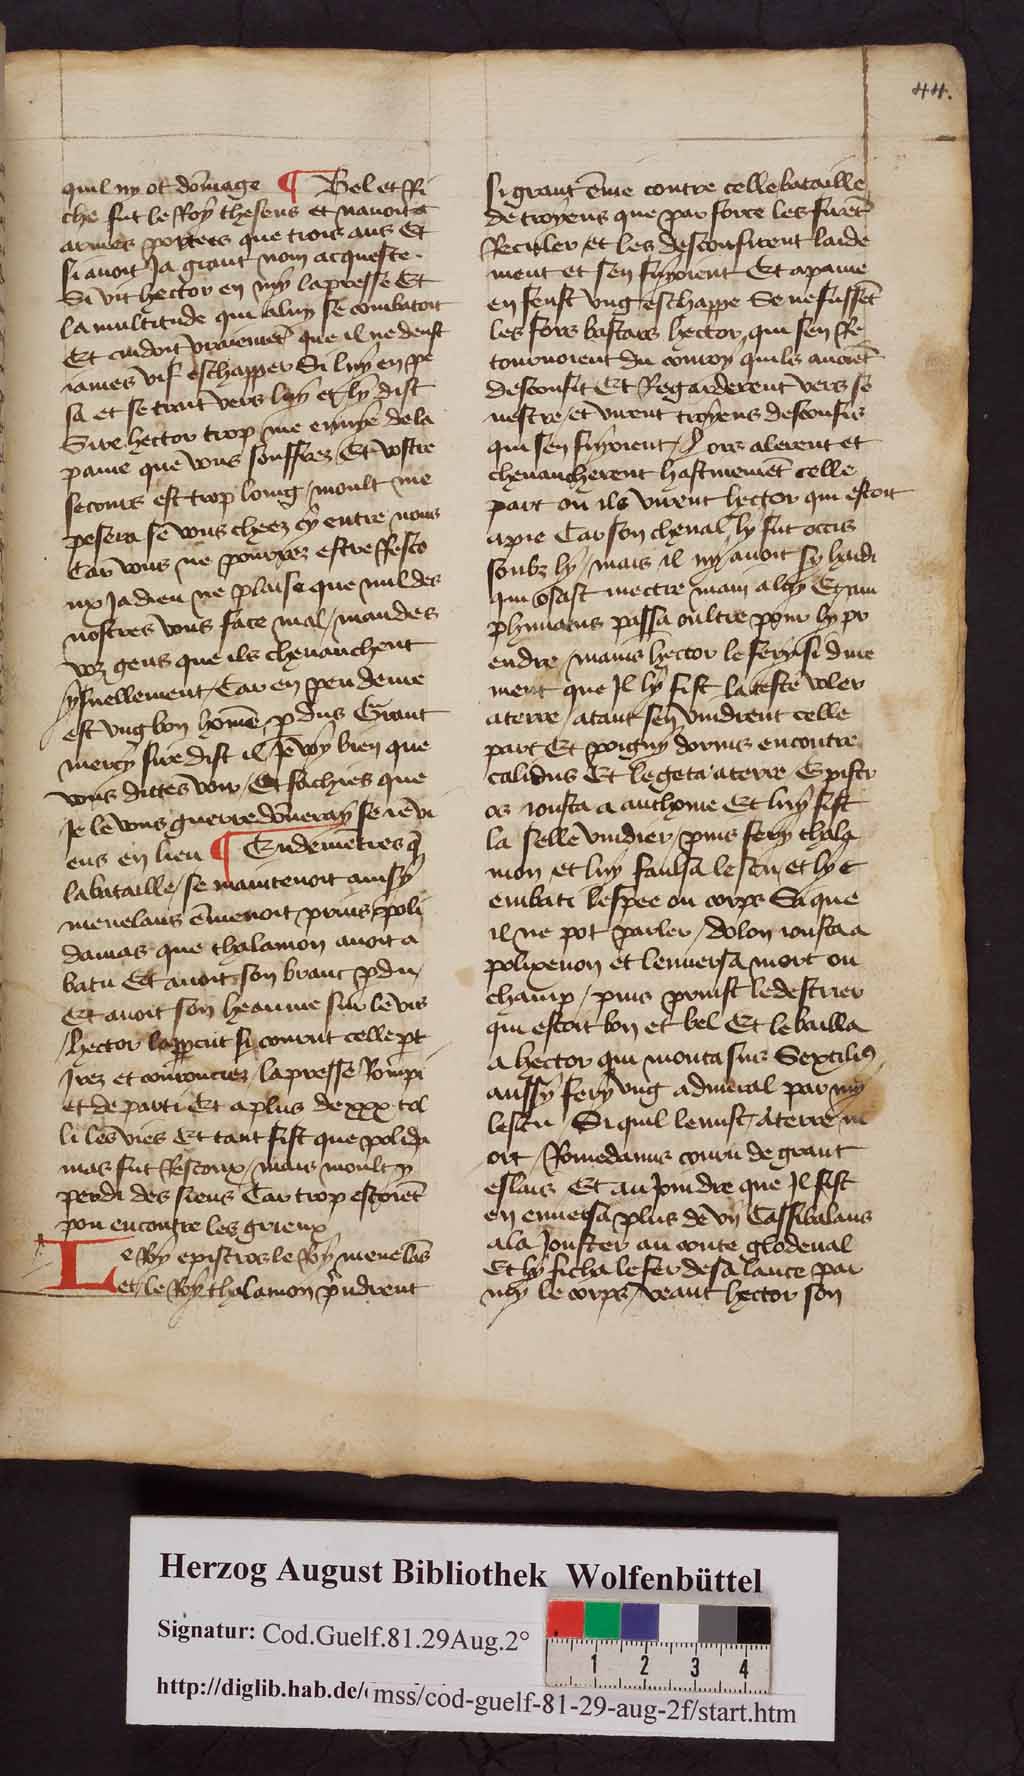 44.
quil ny ot dōmage ¶ Bel et Ri
che fut le Roy theseus et nauoit
armes portees que trois ans Et
si auoit Ja grant nom acqueste.
Si vit hector en my la presse Et
la multitude qui a luy se combatoit
Et cuidoit vraiemēt que il ne deust
iames vif eschapper Si luy en pe
sa et se trait vers luy et ly dist
Sire hector trop me ennuye de la
paine que vous souffrez Et vostre
secours est trop loing / moult me
pesera se vous cheez cy entre nous
Car vous ne pourrez estre Resco
ux Ja dieu ne plaise que nul des
nostres vous face mal / mandes
voz gens que ils cheuauchent
ysnellement / Car en peu deure
est vng bon homē pdus Grant
mercy sire dist il Je voy bien que
vous dittes voir / Et sachies que
Je le vous guerredōneray se ie vi
ens en lieu ¶ Endemētres q̄
la bataille / se maintenoit ainsy
menelaus ēmenoit prins poli
damas que thalamon auoit a
batu Et auoit son brant pdu /
Et auoit son heaume sur le vis
/ hector lappcut sy courut celle pt
Irez et courouciez la presse Rompi
et de parti Et a plus de xxx tol
li les vies Et tant fist que polida
mas fut Rescoux / mais moult y
perdi des siens Car trop estoiēt
pou encontre les grieux
Le Roy epistros le Roy menelās
et le Roy thalamon p̄ndrent
si grant ēuie contre celle bataille
de troyens que par force les firēt
Reculer et les desconfirent laide
ment et sen fuyoient Et a paine
en feust vng eschappe Se ne fussēt
les fors bastars hector, qui sen Re
tournoient du conroy quils auoiēt
desconfit Et Regarderent vers se
nestre / et virent troyens desconfis
qui sen fuyoient / Lors alerent et
cheuaucherent hastiuemēt celle
part ou ils virent hector qui estoit
a pie Car son cheual ly fut occis
soubz ly / mais il ny auoit sy hardi
qui osast mectre main a luy
passa oultre pour ly pr
endre / mains hector le fery si dure
ment que Jl ly fist la teste voler
a terre / atant sen vindrent celle
part Et poigny dorius encontre
calidus Et le geta a terre Epistr
os iousta a anthome Et luy fist
la selle vuidier / puis fery thala
mon et luy faulsa lescu / et ly e
mbati lespee ou corps Si que
il ne pot parler / dolon iousta a
polixenon et lenuersa mort ou
champ / puis prinst le destrier
qui estoit bon et bel Et le bailla
a hector qui monta sus Sextili9
aussy fery vng admiral par my
lescu Si quil le mist a terre m
ort / Romedanus couru de grant
eslais Et au Joindre que Jl fist
en enuersa plus de vij Cassibalans
ala Jouster au conte glodeual
Et ly ficha le fer de sa lance par
my le corps / veant hector son
Herzog August Bibliothek Wolfenbüttel
Signatur: Cod.Guelf.81.29Aug.2°
http://diglib.hab.de/mss/cod-guelf-81-29-aug-2f/start.htm
1 2 3 4